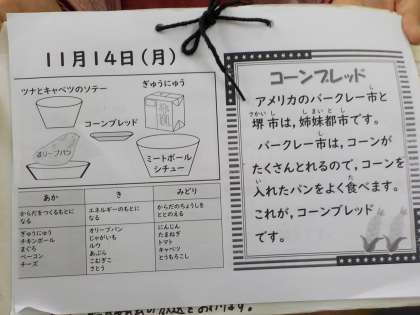 11月14日(月)
ツナとキャベツのソテー
ぎゅうにゅう
コーンブレッド
ミートボール
シチュー
あか
き
みどり
からだをつくるもとに
なる
エネルギーのもとに
なる
からだのちょうしを
ととのえる
ぎゅうにゅう
チキンボール
まぐろ
ベーコン
チーズ
オリーブパン
じゃがいも
ルウ
あぶら
こむぎこ
さとう
にんじん
たまねぎ
トマト
キャベツ
とうもろこし
コーンブレッド
アメリカのバークレー市と
堺市は,姉妹都市です。
バークレー市は,コーンが
たくさんとれるので,コーンを
入れたパンをよく食べます。
これが,コーンブレッド
です。